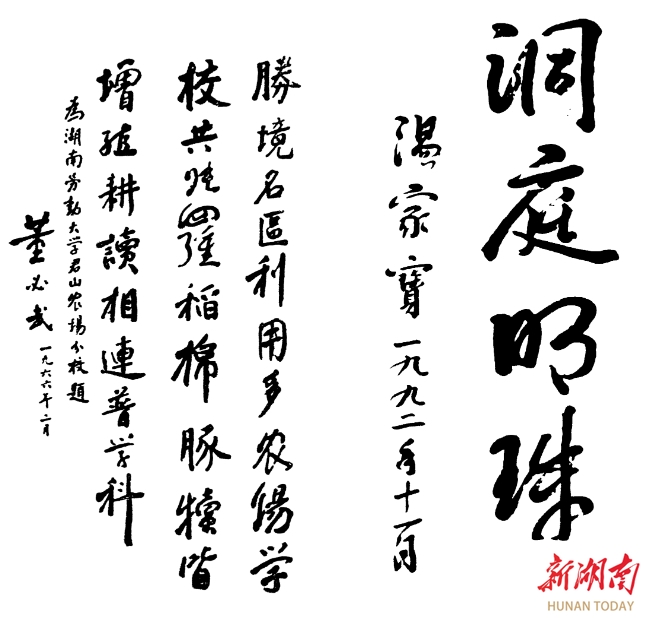 洞庭明珠
温家寶 一九九二年十一月
勝境名區利用多农場学
校共羅稻棉豚犢皆
增殖耕讀相連普学科
為湖南劳動大学君山农場分校題
董必武 一九六六年二月
新湖南
HUNAN TODAY